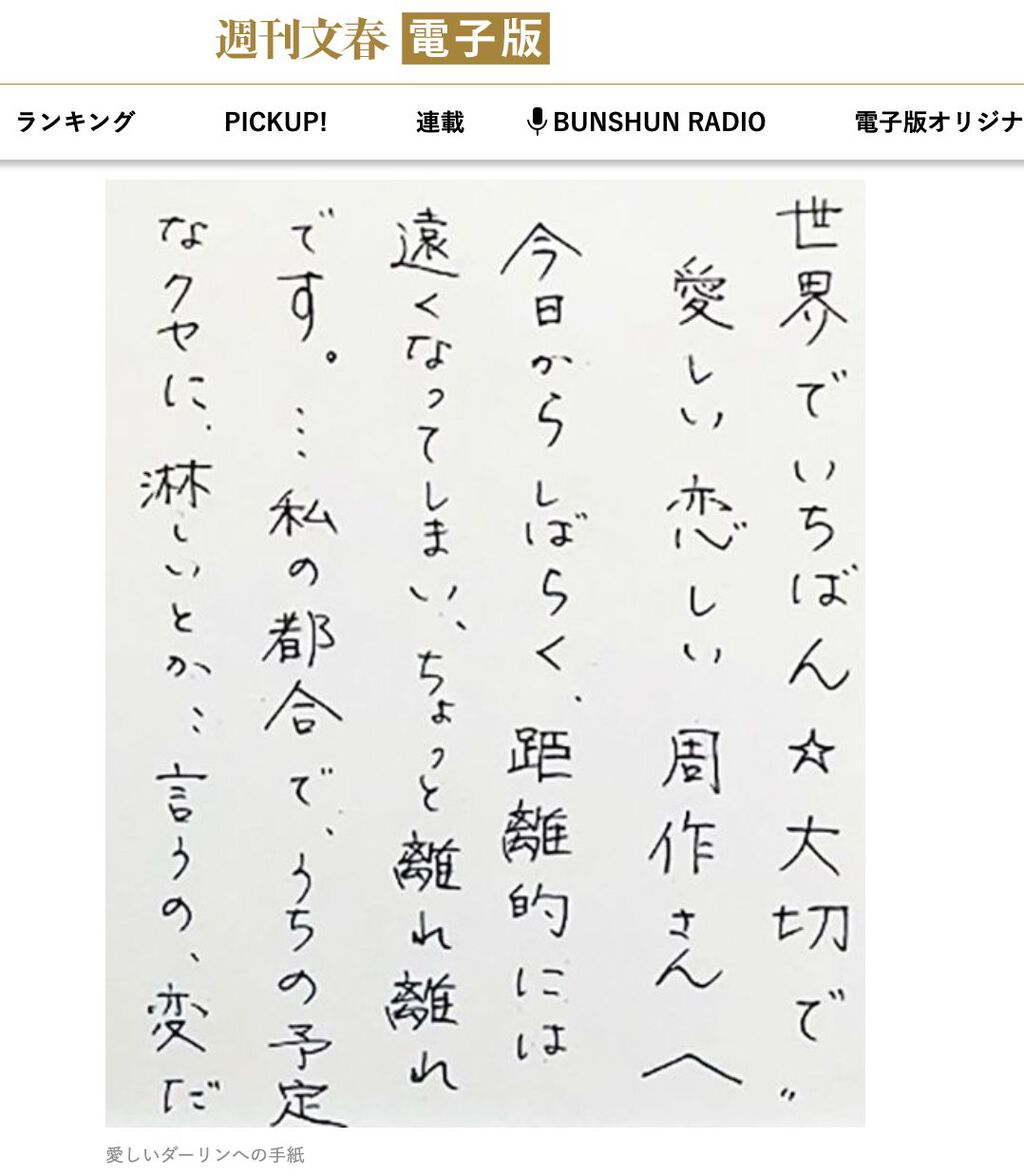 週刊文春 電子版
ランキング PICKUP! 連載 BUNSHUN RADIO 電子版オリジナ
世界でいちばん☆大切で〃
愛しい恋しい周作さんへ
今日からしばらく、距離的には
遠くなってしまい、ちょっと離れ離れ
です。…私の都合で、うちの予定
なクセに、淋しいとか…言うの、変だ
愛しいダーリンへの手紙